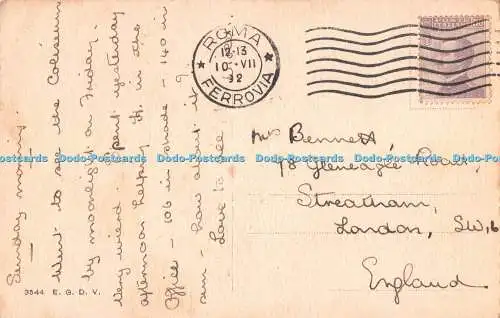 Sunday morning.
Went to see the Coliseum
by moonlight on Friday.
Very weird. Spent yesterday
afternoon helping H. in the
Office - 106 in shade - 140 in
sun - how about it?
Love to all
3544 E. G. D. V.
ROMA
FERROVIA
12-13
10·VII
32
Mrs Bennett,
78 Gleneagle Road,
Streatham,
London, SW.16
England.
Dodo-Postcards Dodo-Postcards Dodo-Postcards Dodo-Postcards Dodo-Postcards Dodo-Postcards